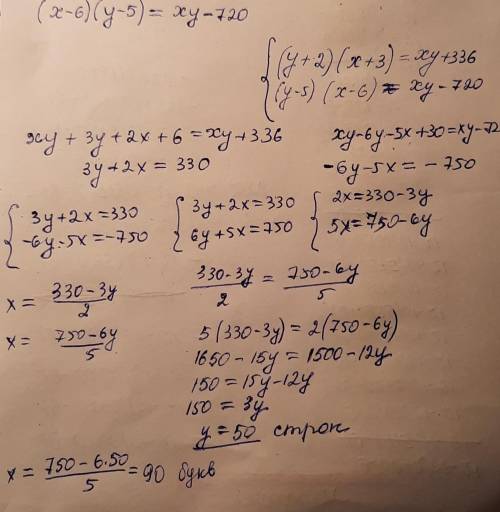 (x-6)(y-5) = xy-720
{(y+2)(x+3) = xy+336
(y-5)(x-6) = xy-720
xy + 3y + 2x + 6 = xy+336
xy-6y-5x+30=xy-72
3y+2x = 330
-6y-5x = -750
{3y+2x=330
-6y-5x=-750
{3y+2x=330
6y+5x=750
{2x=330-3y
5x=750-6y
x = (330-3y)/2
(330-3y)/2 = (750-6y)/5
x = (750-6y)/5
5(330-3y) = 2(750-6y)
1650-15y = 1500-12y
150 = 15y-12y
150 = 3y
y = 50 строк
x = (750-6·50)/5 = 90 букв